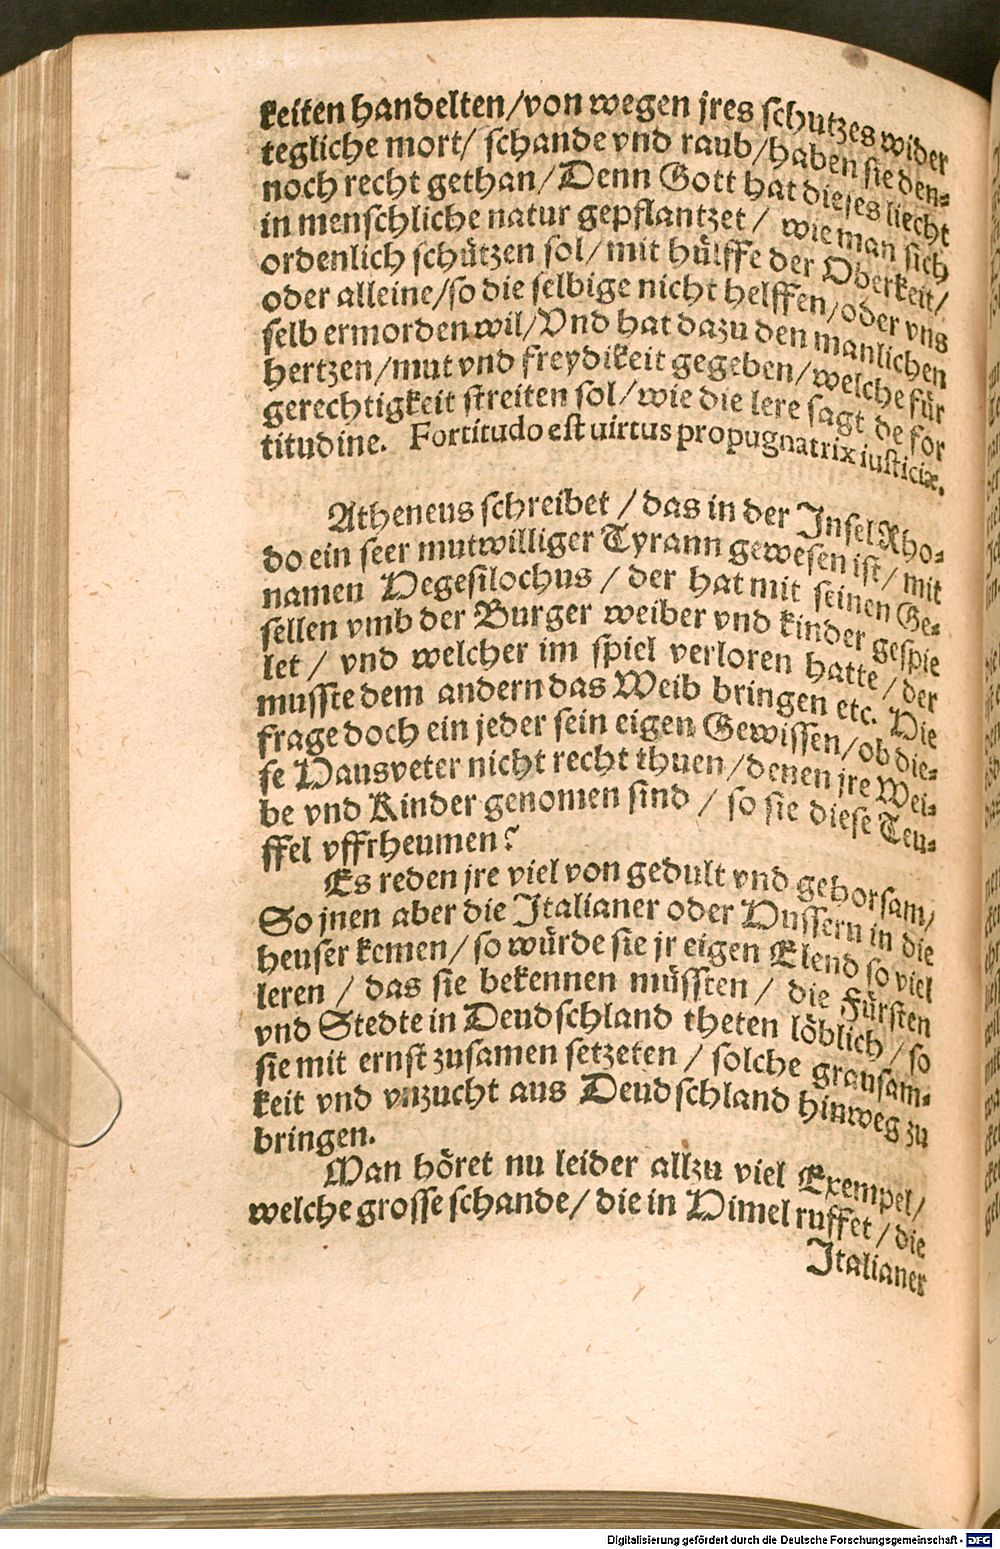 keiten handelten/von wegen jres schutzes wider
tegliche mort/ schande vnd raub/haben sie den-
noch recht gethan/Denn Gott hat dieses liecht
in menschliche natur gepflantzet/ wie man sich
ordenlich schützen sol/mit hülffe der Oberkeit/
oder alleine/so die selbige nicht helffen/oder vns
selb ermorden wil/Vnd hat dazu den manlichen
hertzen/mut vnd freydikeit gegeben/welche für
gerechtigkeit streiten sol/wie die lere sagt de for
titudine. Fortitudo est uirtus propugnatrix iusticiæ.
Atheneus schreibet/das in der Insel Rho-
do ein seer mutwilliger Tyrann gewesen ist/mit
namen Hegesilochus/der hat mit seinen Ge-
sellen vmb der Burger weiber vnd kinder gespie
let/ vnd welcher im spiel verloren hatte/der
musste dem andern das Weib bringen etc. Hie
frage doch ein jeder sein eigen Gewissen/ob die-
se Hausveter nicht recht thuen/denen jre Wei-
be vnd Kinder genomen sind/ so sie diese Teu-
ffel vffrheumen?
Es reden jre viel von gedult vnd gehorsam/
So jnen aber die Italianer oder Hussern in die
heuser kemen/so würde sie jr eigen Elend so viel
leren/ das sie bekennen müssten/ die Fürsten
vnd Stedte in Deudschland theten löblich/so
sie mit ernst zusamen setzeten/ solche grausam-
keit vnd vnzucht aus Deudschland hinweg zu
bringen.
Man höret nu leider allzu viel Exempel/
welche grosse schande/die in Himel ruffet/die
Italianer
Digitalisierung gefördert durch die Deutsche Forschungsgemeinschaft - DFG